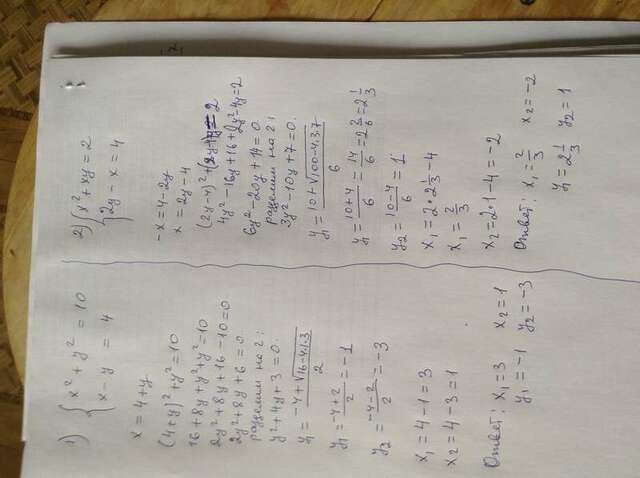 1) { x² + y² = 10
x - y = 4
x = 4 + y
(4+y)² + y² = 10
16 + 8y + y² + y² = 10
2y² + 8y + 16 - 10 = 0
2y² + 8y + 6 = 0
разделим на 2:
y² + 4y + 3 = 0
y₁ = (-4 + √(16-4·1·3))/2
y₁ = (-4+2)/2 = -1
y₂ = (-4-2)/2 = -3
x₁ = 4 - 1 = 3
x₂ = 4 - 3 = 1
Ответ: x₁ = 3 x₂ = 1
y₁ = -1 y₂ = -3
2) { x² + xy = 2
2y - x = 4
-x = 4 - 2y
x = 2y - 4
4y² - 16y + 16 + 2y² - 4y = 2
6y² - 20y + 14 = 0
разделим на 2:
3y² - 10y + 7 = 0
y₁ = (10 + √(100-4·3·7))/6
y₁ = (10+4)/6 = 14/6 = 2 2/6 = 2 1/3
y₂ = (10-4)/6 = 1
x₁ = 2 · 2 1/3 - 4
x₁ = 2/3
x₂ = 2·1 - 4 = -2
Ответ: x₁ = 2/3 x₂ = -2
y₁ = 2 1/3 y₂ = 1